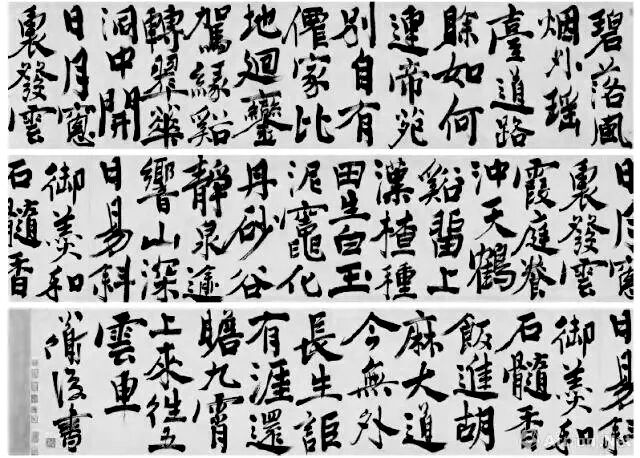 碧落風
烟外瑶
臺道路
賒如何
連帝苑
別自有
僊家比
地迴鑾
駕緣谿
轉翠華
洞中開
日月窻
裏發雲
日月窻
裏發雲
霞庭養
沖天鶴
谿畱上
漢楂種
田生白玉
泥竈化
丹砂谷
靜泉逾
響山深
日易斜
御羹和
石髓香
日易斜
御羹和
石髓香
飯進胡
麻大道
今無外
長生詎
有涯還
瞻九霄
上來往五
雲車
道復書